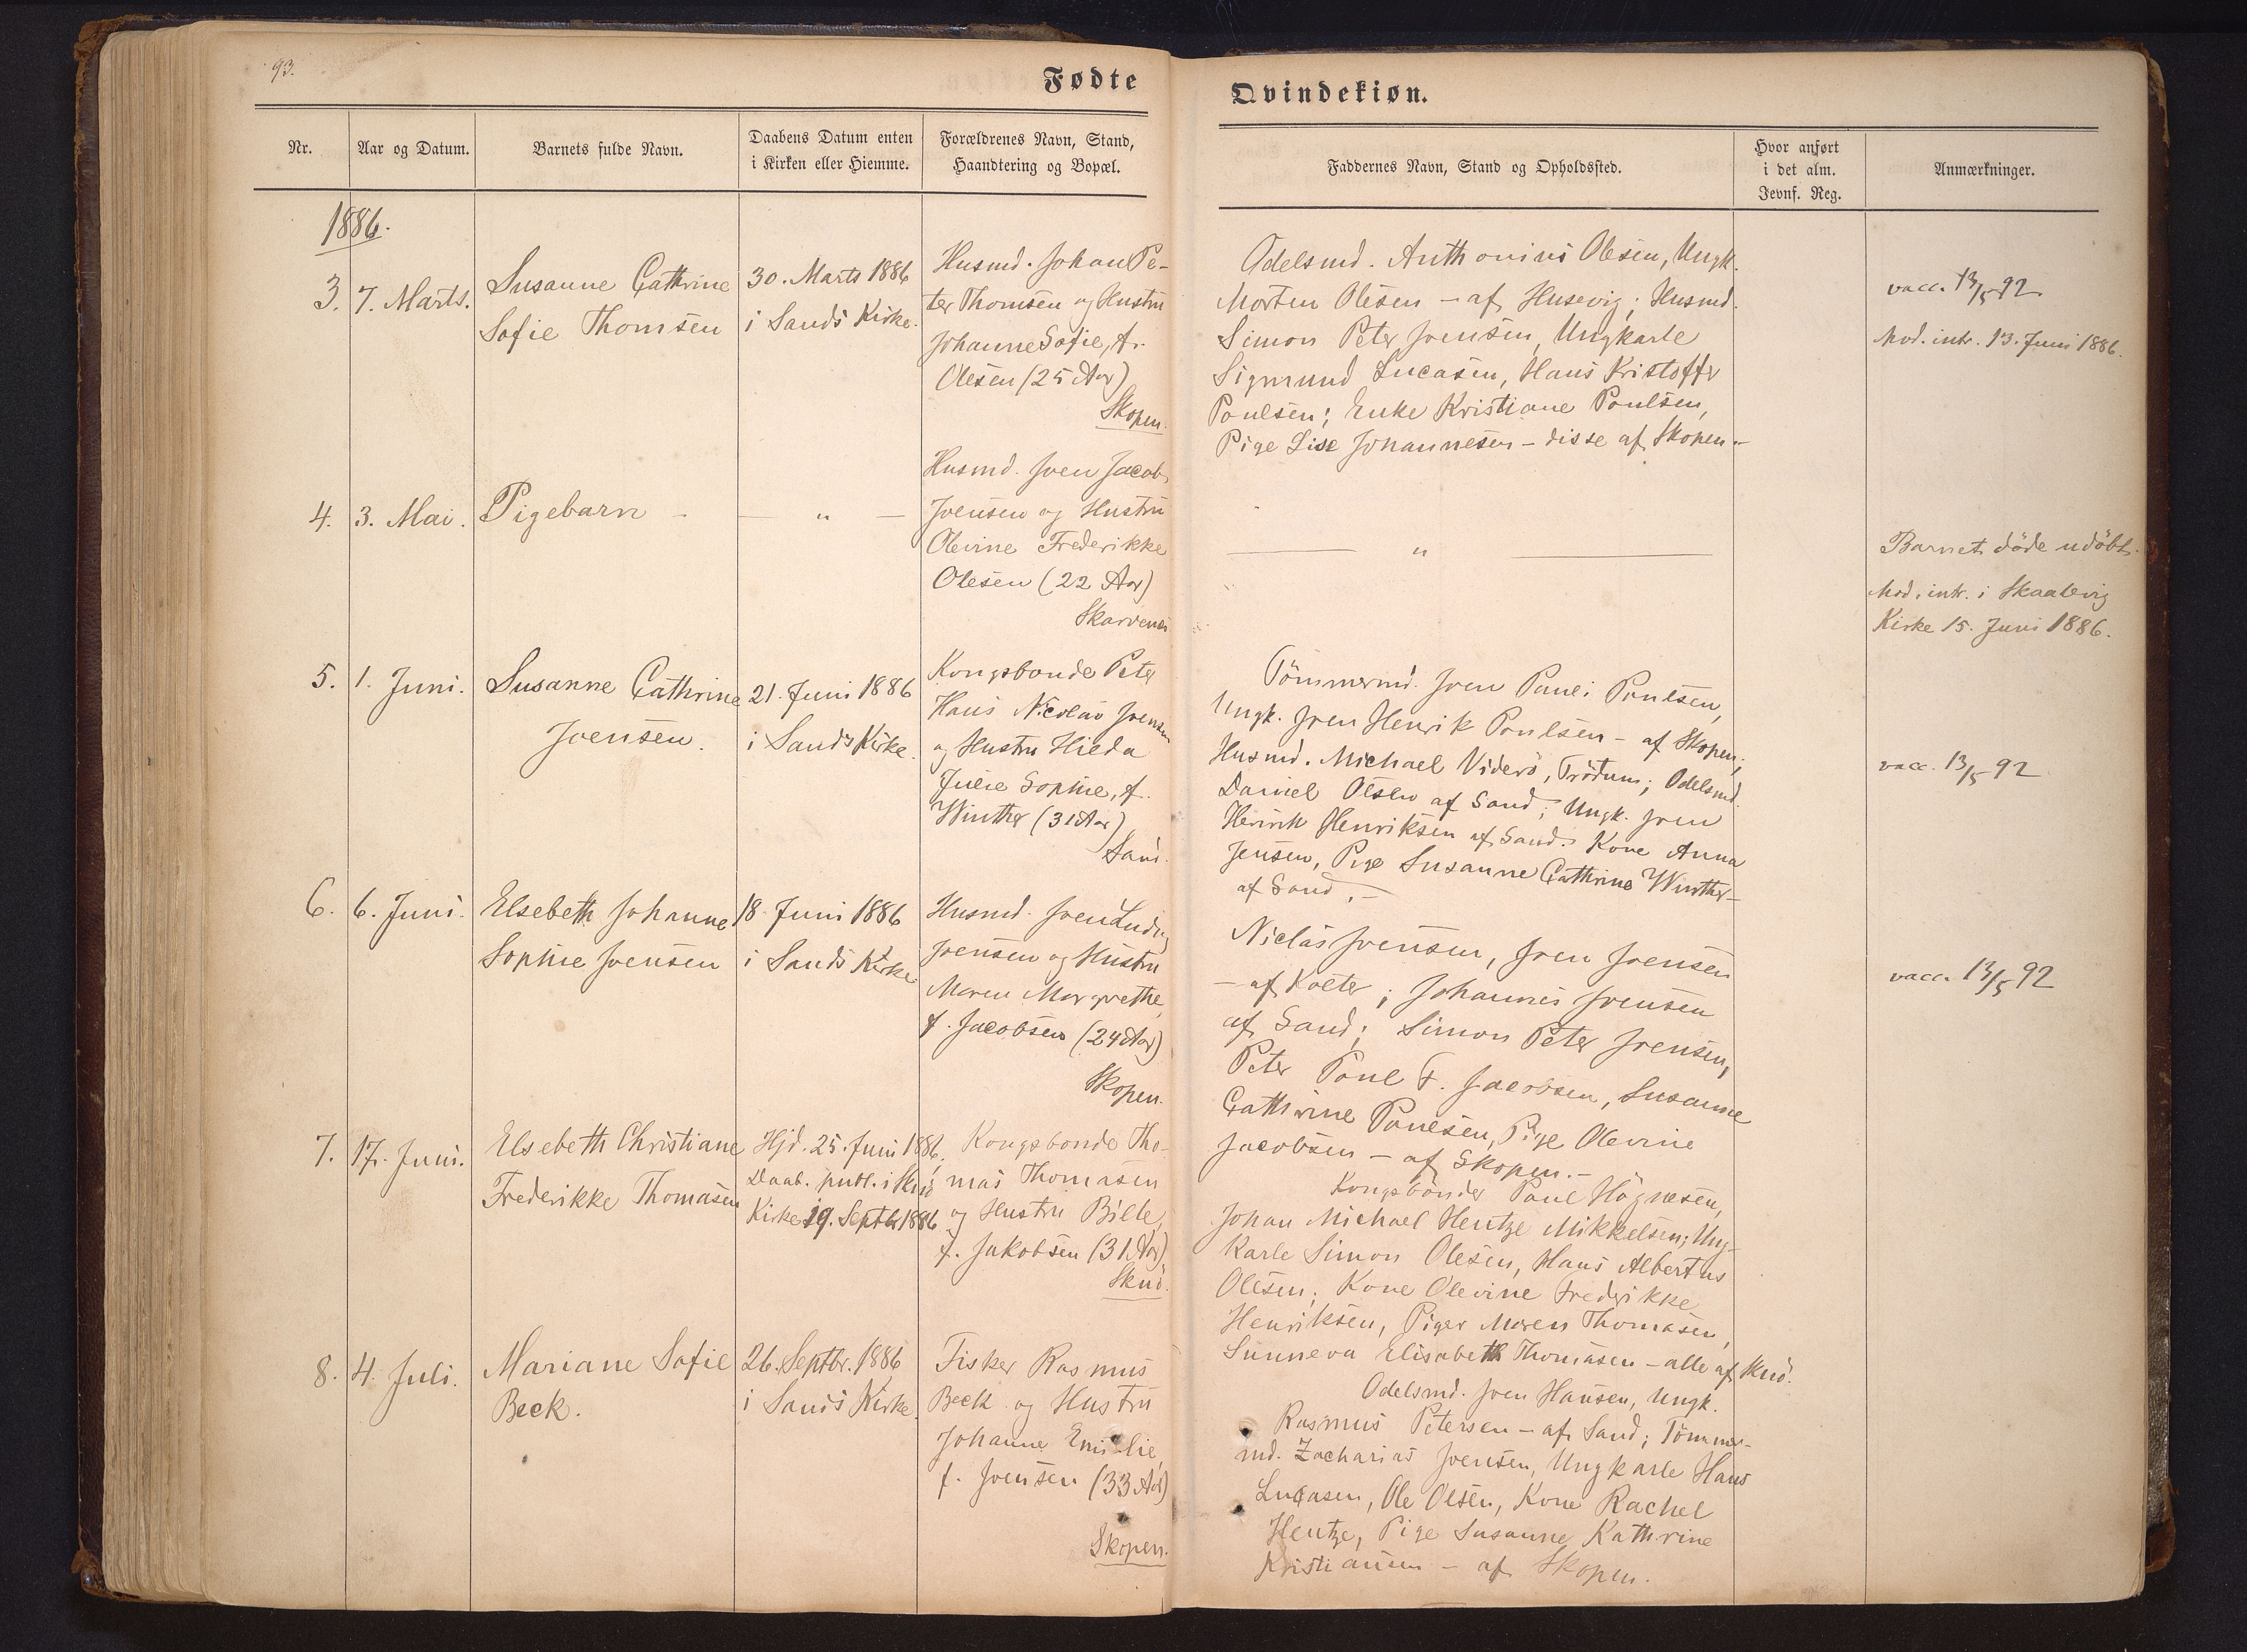 93.
Fødte
Qvindekiøn.
Nr.
Aar og Datum.
Barnets fulde Navn.
Daabens Datum enten
i Kirken eller Hiemme.
Forældrenes Navn, Stand,
Haandtering og Bopæl.
Faddernes Navn, Stand og Opholdssted.
Hvor anført
i det alm.
Jevnf. Reg.
Anmærkninger.
1886.
3.
7. Marts.
Susanne Cathrine
Sofie Thomsen
30. Marts 1886
i Sands Kirke.
Husmd. Johan Pe-
ter Thomsen og Hustru
Johanne Sofie, f.
Olesen (25 Aar)
Skopen.
Odelsmd. Anthonius Olesen, Ungk.
Morten Olesen - af Husevig; Husmd.
Simon Peter Joensen, Ungkarle
Sigmund Lucasen, Hans Kristoffer
Poulsen; Enke Kristiane Poulsen,
Pige Lise Johannesen - disse af Skopen.-
vacc. 13/5 92.
Mod. intr. 13. Juni 1886.
4.
3. Mai.
Pigebarn -
— " —
Husmd. Joen Jacob
Joensen og Hustru
Olevine Frederikke
Olesen (22 Aar)
Skarvenes
— " —
Barnet døde udøbt.
Mod. intr. i Skaalevig
Kirke 15. Juni 1886.
5.
1. Juni.
Susanne Cathrine
Joensen.
21. Juni 1886
i Sands Kirke.
Kongsbonde Peter
Hans Nicolai Joensen
og Hustru Hilda
Julie Sophie, f.
Winther (31 Aar)
Sand.
Tömmermd. Joen Pauli Poulsen,
Ungk. Joen Henrik Poulsen - af Skopen;
Husmd. Michael Viderö, Trödum; Odelsmd.
Daniel Olsen af Sand; Ungk. Joen
Henrik Henriksen af Sand. Kone Anna
Jensen, Pige Susanne Cathrine Winther -
af Sand.-
vacc. 13/5 92
6.
6. Juni.
Elsebeth Johanne
Sophie Joensen
18 Juni 1886
i Sands Kirke
Husmd. Joen Ludvig
Joensen og Hustru
Maren Margrethe,
f. Jacobsen (24 Aar)
Skopen.
Niclas Joensen, Joen Joensen
- af Kolter; Johannes Joensen
af Sand; Simon Peter Joensen,
Peter Poul F. Jacobsen, Susanne
Cathrine Poulsen, Pige Olevine
Jacobsen - af Skopen.-
vacc. 13/5 92
7.
17. Juni.
Elsebeth Christiane
Frederikke Thomasen
Hjd. 25. Juni 1886;
Daab. publ. i Skuö
Kirke 19. Septbr 1886
Kongsbonde Tho-
mas Thomasen
og Hustru Bille,
f. Jakobsen (31 Aar)
Skuö.
Kongsbönder Poul Högnesen,
Johan Michael Hentze Mikkelsen; Ung-
karle Simon Olesen, Hans Albertus
Olesen; Kone Olevine Frederikke
Henriksen, Piger Maren Thomasen,
Sunneva Elisabeth Thomasen - alle af Skuö.
8.
4. Juli.
Mariane Sofie
Beck.
26. Septbr. 1886
i Sands Kirke.
Fisker Rasmus
Beck og Hustru
Johanne Emilie,
f. Joensen (33 Aar)
Skopen.
Odelsmd. Joen Hansen, Ungk.
Rasmus Petersen - af Sand; Tömmer-
md. Zacharias Joensen, Ungkarle Hans
Lucasen, Ole Olsen, Kone Rachel
Hentze, Pige Susanne Kathrine
Kristiansen - af Skopen.